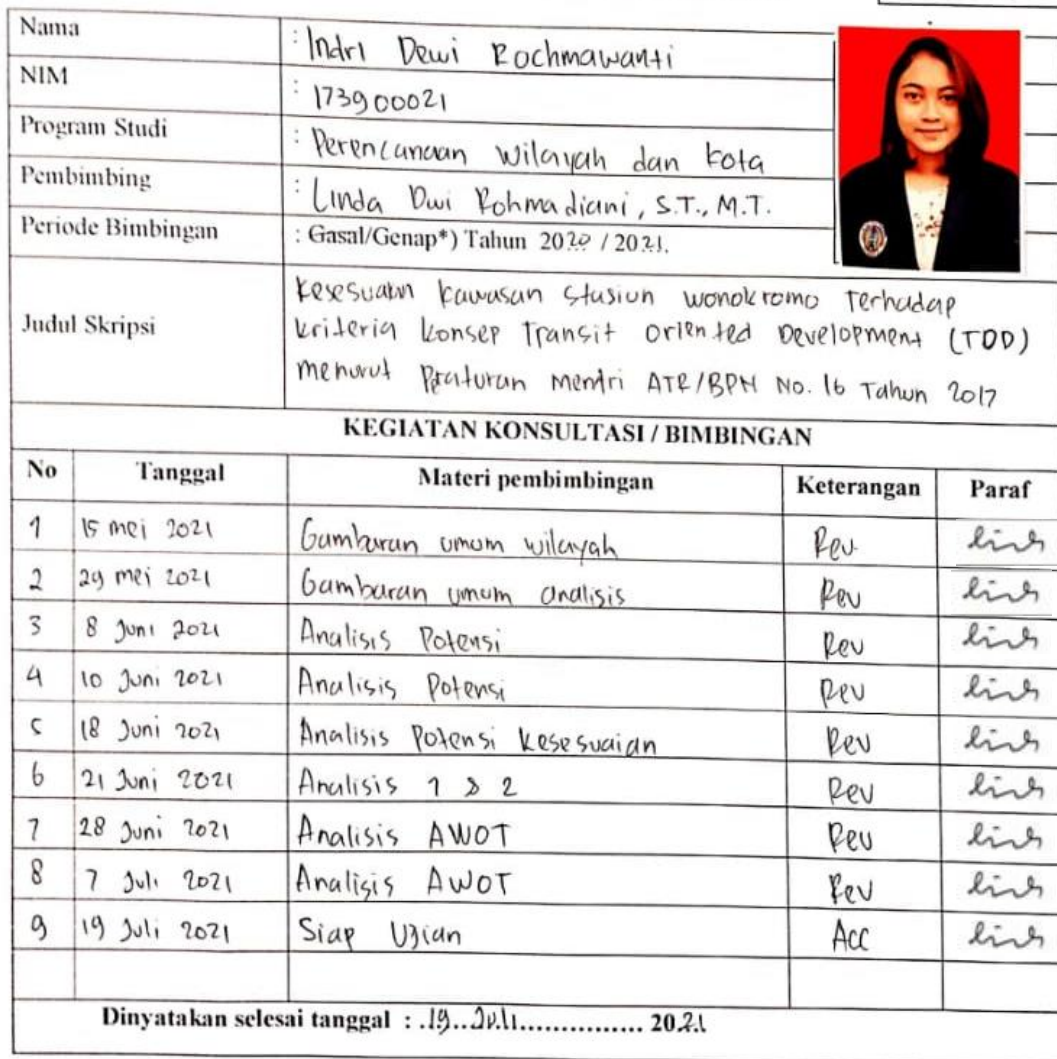 Nama : Indri Dewi Rochmawanti
NIM : 173900021
Program Studi : Perencanaan Wilayah dan Kota
Pembimbing : Linda Dwi Rohmadiani, S.T., M.T.
Periode Bimbingan : Gasal/Genap*) Tahun 2020 / 2021.
Judul Skripsi
Kesesuaian Kawasan Stasiun Wonokromo Terhadap
Kriteria Konsep Transit Oriented Development (TOD)
menurut Peraturan Mentri ATR/BPN No. 16 Tahun 2017
KEGIATAN KONSULTASI / BIMBINGAN
No Tanggal Materi pembimbingan Keterangan Paraf
1 15 mei 2021 Gambaran umum wilayah Rev
2 29 mei 2021 Gambaran umum analisis Rev
3 8 Juni 2021 Analisis Potensi Rev
4 10 Juni 2021 Analisis Potensi Rev
5 18 Juni 2021 Analisis Potensi Kesesuaian Rev
6 21 Juni 2021 Analisis 1 & 2 Rev
7 28 Juni 2021 Analisis AWOT Rev
8 7 Juli 2021 Analisis AWOT Rev
9 19 Juli 2021 Siap Ujian Acc
Dinyatakan selesai tanggal : .19..Juli............... 2021